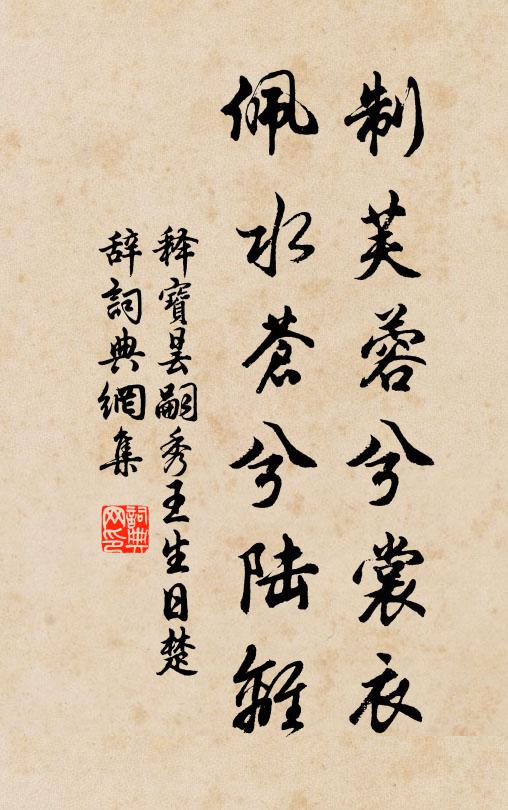 制芙蓉兮裳衣
佩水苍兮陆離
释寶昙嗣秀王生日楚
辞詞典網集
詞典
网印